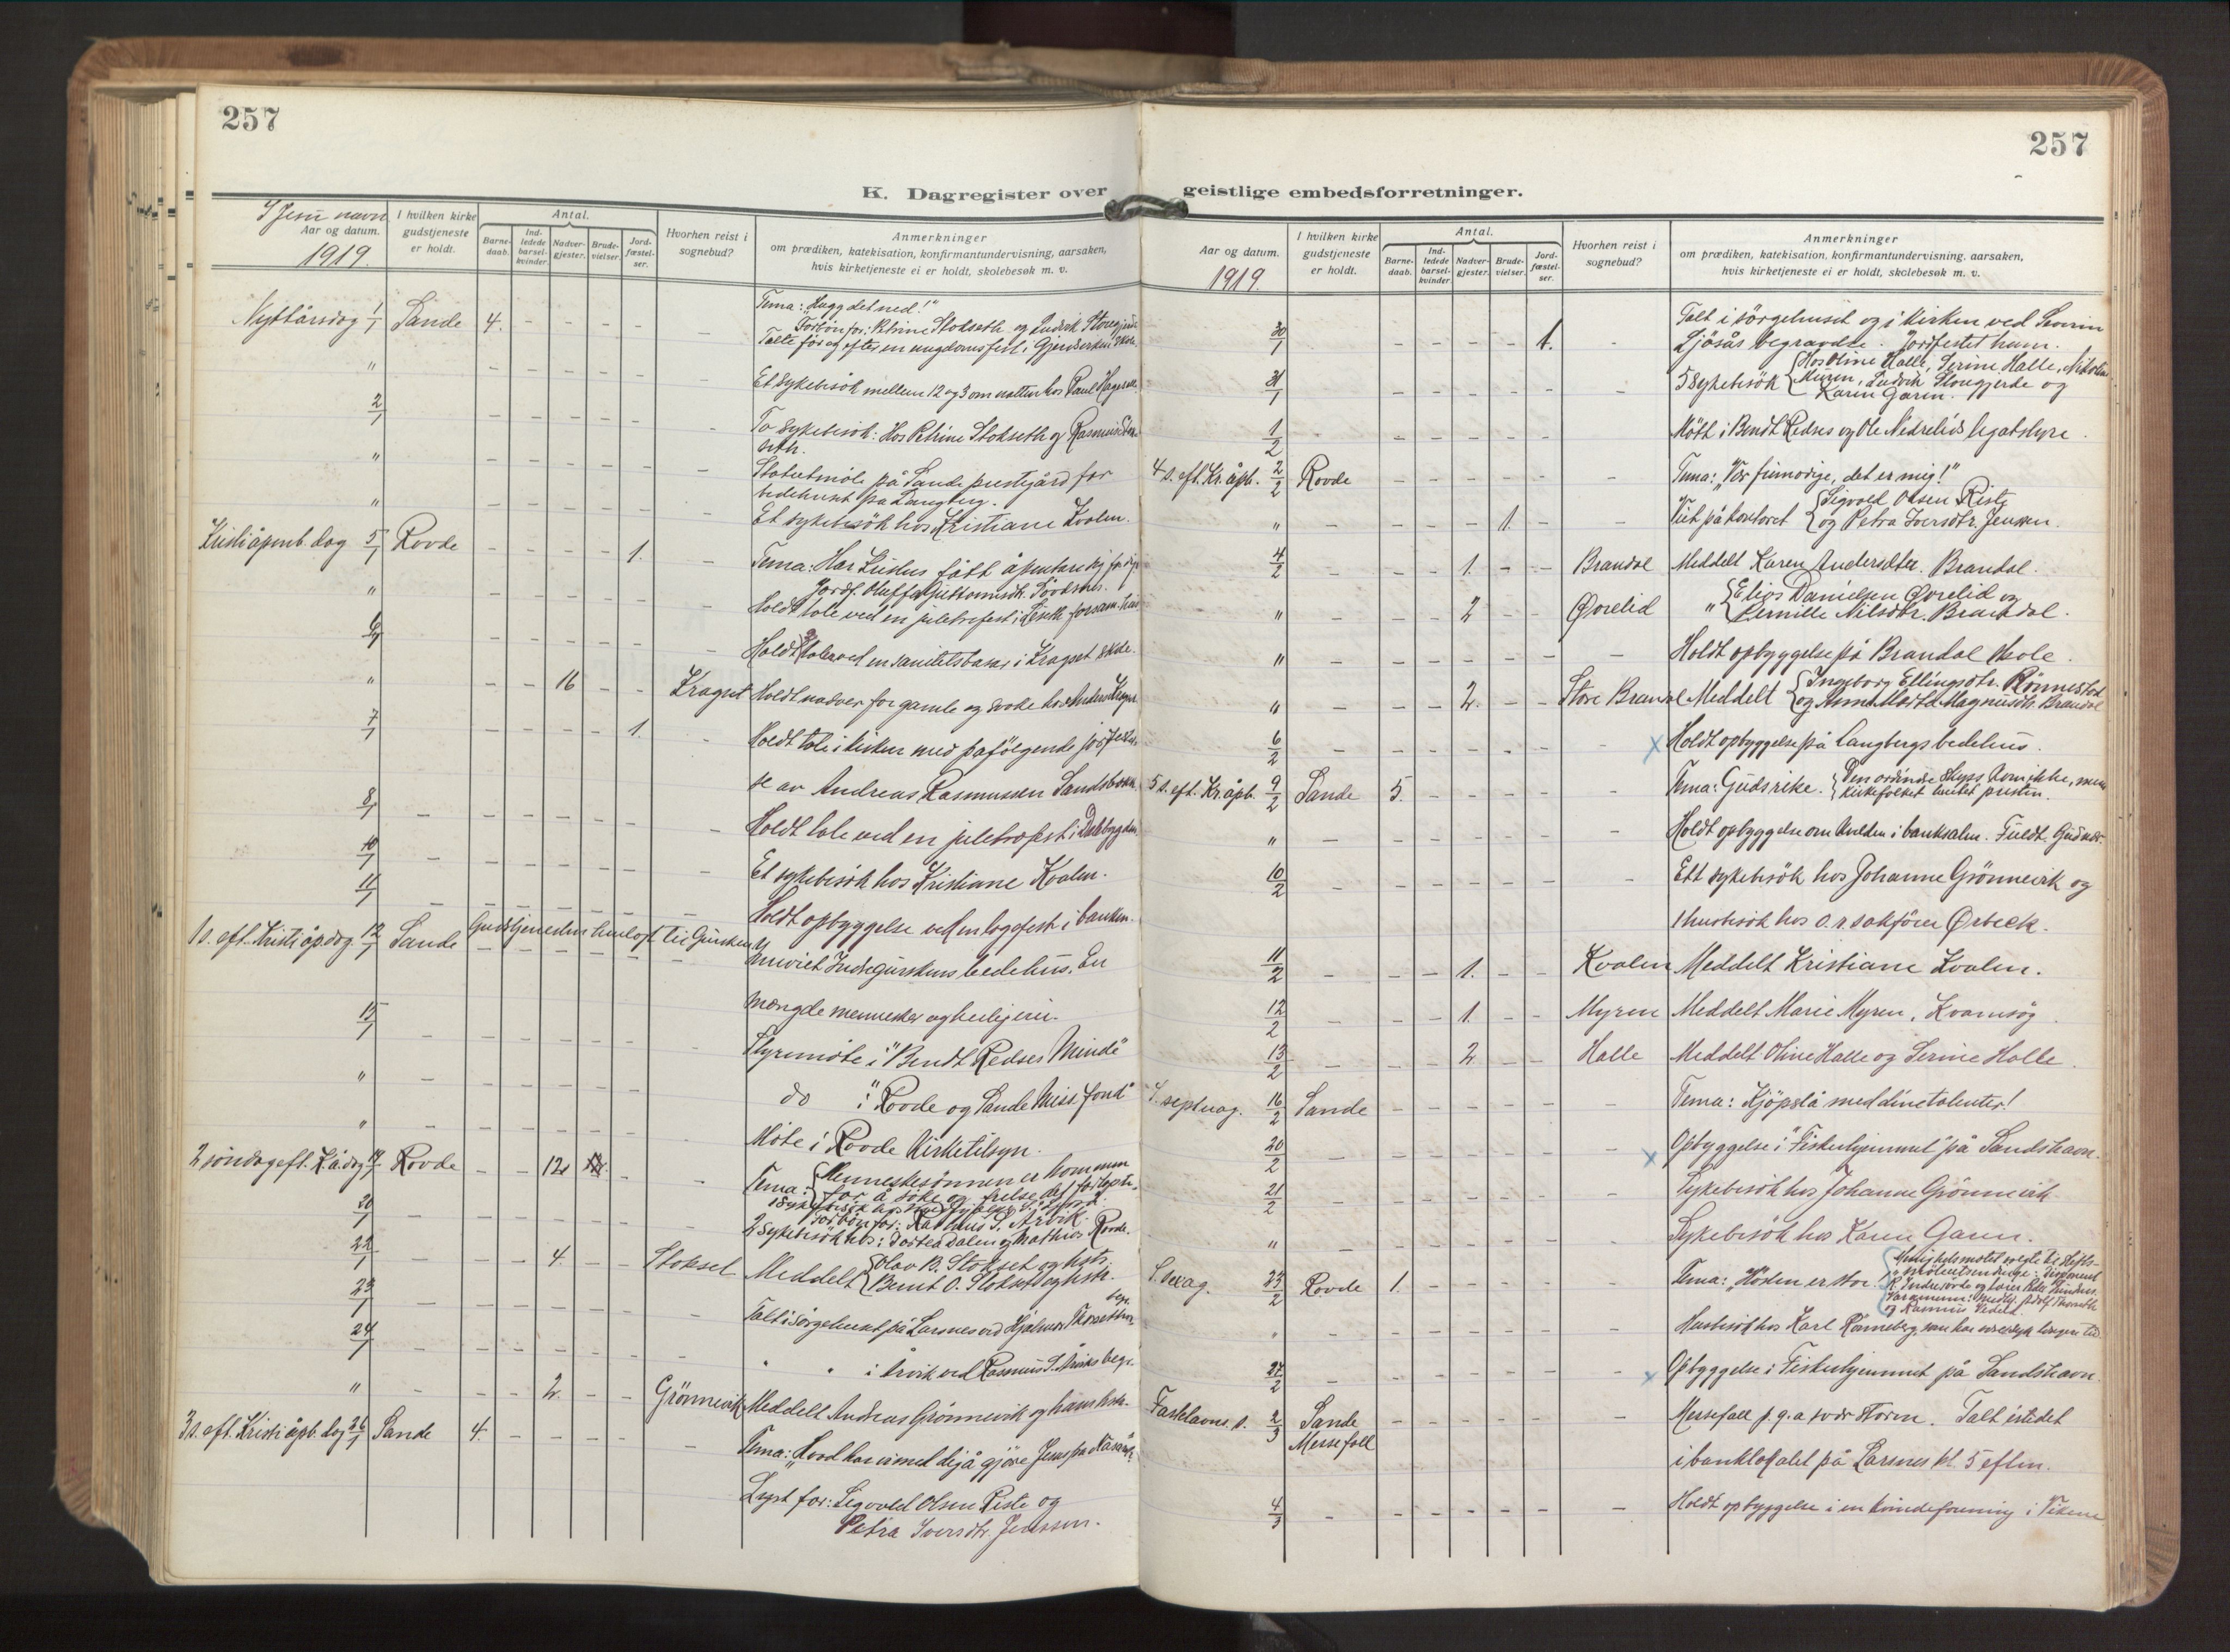 257
257
K. Dagregister over geistlige embedsforretninger.
I Jesu navn
Aar og datum.
1919
I hvilken kirke gudstjeneste er holdt.
Antal.
Barne-daab.
Ind-ledede barsel-kvinder.
Nadver-gjester.
Brude-vielser.
Jord-fæstel-ser.
Hvorhen reist i sognebud?
Anmerkninger
om prædiken, katekisation, konfirmantundervisning, aarsaken,
hvis kirketjeneste ei er holdt, skolebesøk m. v.
Nyttårsdag 1/1 Sande 4. - - - - - Tema: "Hugg det ned!"
Forbön for: Petrine Stokseth og Ludvik
" - - - - - - Talte før og efter en ungdomsfest i Gjerdserken skole.
2/1 - - - - - - Et sykebesök mellem 12 og 3 om natten hos Paul
" - - - - - - To sykebesök: Hos Petrine Stokseth og Rasmus
seth.
" - - - - - - på Sande prestegård for
bedehuset på Langberg.
Et sykebesök hos Kristiane Kvalen.
Kristi åpenb. dag 5/1 Rovde - - - - 1. - Tema: Har Kristus fått åpenbare sig for dig?
Jordf. Oluffa
" - - - - - - Holdt tale ved en juletrefest i forsam. hus
6/1 - - - - - - Holdt 2 taler ved en sanitetsbasar i Kragset skole.
" - - 16 - - Kragset Holdt nadver for gamle og svake hos Anders
7/1 - - - - 1. - Holdt tale i kirken med påfölgende jordfestel-
se av Andreas Rasmussen Sandsbakk.
8/1 - - - - - - Holdt tale ved en juletrefest i Dalsbygden
10/1 - - - - - - Et sykebesök hos Kristiane Kvalen.
11/1 - - - - - - Holdt opbyggelse ved en logefest i banken.
1 s. eft. Kristi åp. dag 12/1 Sande Gudstjenesten henlagt til Gursken
Inviet Indregurskens bedehus. En
mengde mennesker og
15/1 - - - - - - Styremöte i "Bendt Redses Minde"
" - - - - - - do i "Rovde og Sande Miss. fond"
" - - - - - - Möte i Rovde Kirketilsyn.
2 söndag eft. K. å. dag 19/1 Rovde - - 12 - - Tema: Menneskesönnen er kommen
for å söke og frelse det fortapte.
Forbön for: Rasmus S. Årvik.
20/1 - - - - - - 2 sykebesök hos: Dortea Dalen og Mathias Rovde.
22/1 - - 4. - - Stokset Meddelt Olav B. Stokset og hstr.
Bernt O. Stokset og hstr.
23/1 - - - - - - Talt i sörgehuset på Larsnes ved Hjalmar begr.
24/1 - - - - - - " " i Årvik ved Rasmus S. Årviks begr.
" - - 2. - - Grönnevik Meddelt Andreas Grönnevik og hans hstr.
3 s. eft. Kristi åpb. dag 26/1 Sande 4. - - - - - Tema: "Hvad har vi med dig å gjöre Jesus fra Nasaret"
Lyst for: Sigvald Olsen Riste og
Petra Iversdtr. Jenssen.
Aar og datum.
1919
I hvilken kirke gudstjeneste er holdt.
Antal.
Barne-daab.
Ind-ledede barsel-kvinder.
Nadver-gjester.
Brude-vielser.
Jord-fæstel-ser.
Hvorhen reist i sognebud?
Anmerkninger
om prædiken, katekisation, konfirmantundervisning, aarsaken,
hvis kirketjeneste ei er holdt, skolebesøk m. v.
30/1 - - - - 1. - Talt i sörgehuset og i kirken ved Severin
Ljösås begravelse. Jordfestet ham.
31/1 - - - - - - 5 sykebesök Hos Oline Halle, Serine Halle, Nikoline
Myren, Ludvik Stougjerde og
Karen Garen.
1/2 - - - - - - Mött i Bendt Redses og Ole Nedrelids legatstyre.
4 s. eft. Kr. åpb. 2/2 Rovde - - - - - - Tema: "Vær frimodige, det er mig!"
" - - - - 1. - - Viet på kontoret Sigvald Olsen Riste
og Petra Iversdtr. Jenssen.
4/2 - - - 1. - - Brandal Meddelt Karen Andersdter. Brandal.
" - - - 2 - - Øvrelid " Elias Danielsen Øvrelid og
Pernille Nilsdtr. Brandal.
" - - - - - - Holdt opbyggelse på Brandal skole.
" - - - 2. - - Store Brandal Meddelt Ingeborg Ellingsdtr. Rönnestad
og Anne Marta Magnusdtr. Brandal
6/2 - - - - - - x Holdt opbyggelse på Langbergs bedehus.
5 s. eft. Kr. åpb. 9/2 Sande 5. - - - - - Tema: Guds rike. Den ordinære skyss kom ikke, men
kirkefolket hentet presten.
" - - - - - - Holdt opbyggelse om kvelden i banksalen. Fuldt. Gud nær.
10/2 - - - - - - Ett sykebesök hos Johanne Grönnevik og
1 husbesök hos o.r.sakförer Ørbeck.
11/2 - - - 1. - - Kvalen Meddelt Kristiane Kvalen.
12/2 - - - 1. - - Myren Meddelt Marie Myren, Kvamsög.
13/2 - - - 2 - - Halle Meddelt Oline Halle og Serine Halle.
S. septuag. 16/2 Sande - - - - - - Tema: Kjöpslå med dine talenter!
20/2 - - - - - - x Opbyggelse i "Fiskerhjemmet" på Sandshavn.
21/2 - - - - - - Sykebesök hos Johanne Grönnevik
" - - - - - - Sykebesök hos Karen Garen.
S. sexag. 23/2 Rovde 1. - - - - - Tema: Höden er stor. Menighetsmötet valgte til
Varamenn:
og Rasmus
" - - - - - - Husbesök hos Karl Rönneberg, som har været syk lengere tid
27/2 - - - - - - x Opbyggelse i Fiskerhjemmet på Sandshavn.
Fastelavns s. 2/3 Sande - - - - - - Messefall p. g. a svær storm. Talt istedet
Messefall
i banklokalet på Larsnes kl. 5 eftm.
4/3 - - - - - - Holdt opbyggelse i en kvindeforening i Vikene